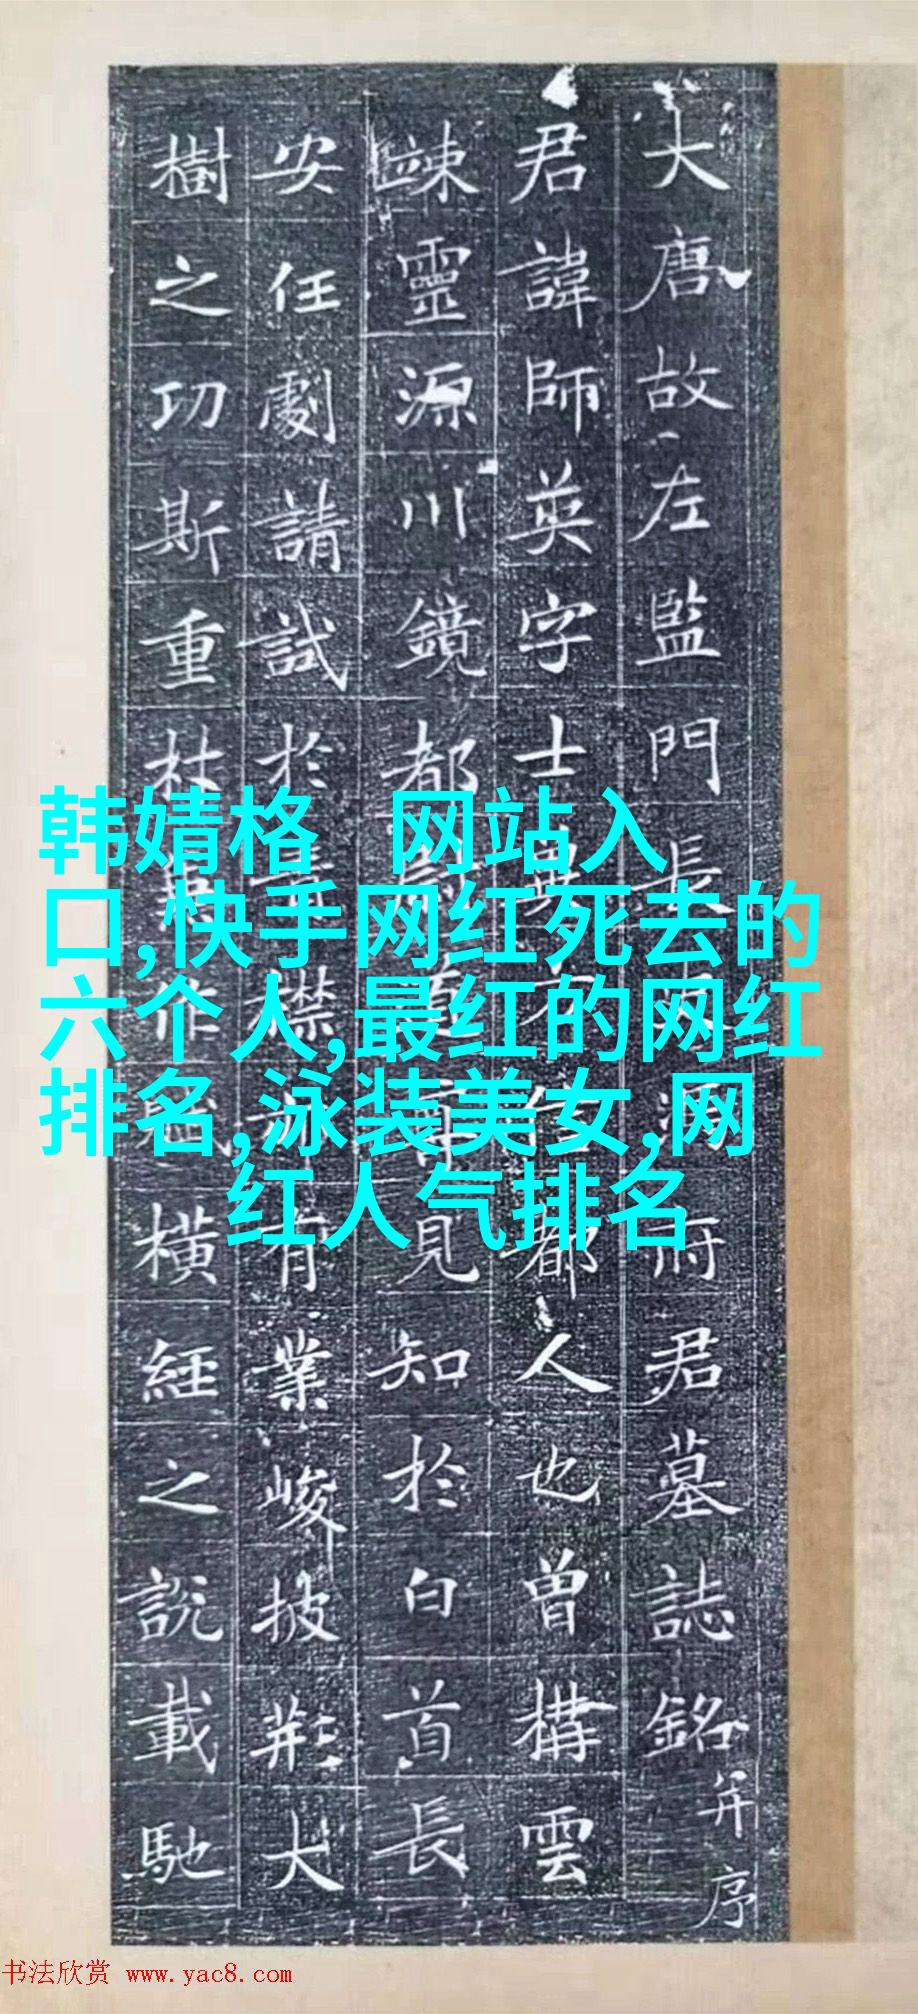 韩婧格 网站入
口,快手网红死去的
六个人,最红的网红
排名,泳装美女,网
红人气排名
大唐故左監門長府君墓誌銘并序
君諱師英字士都人也曾構雲
竦靈源川鏡都見知於白首長
安任劇請試於有業峻披荊大
樹之功斯重杖作橫經之說載馳
书法欣赏 www.yac8.com